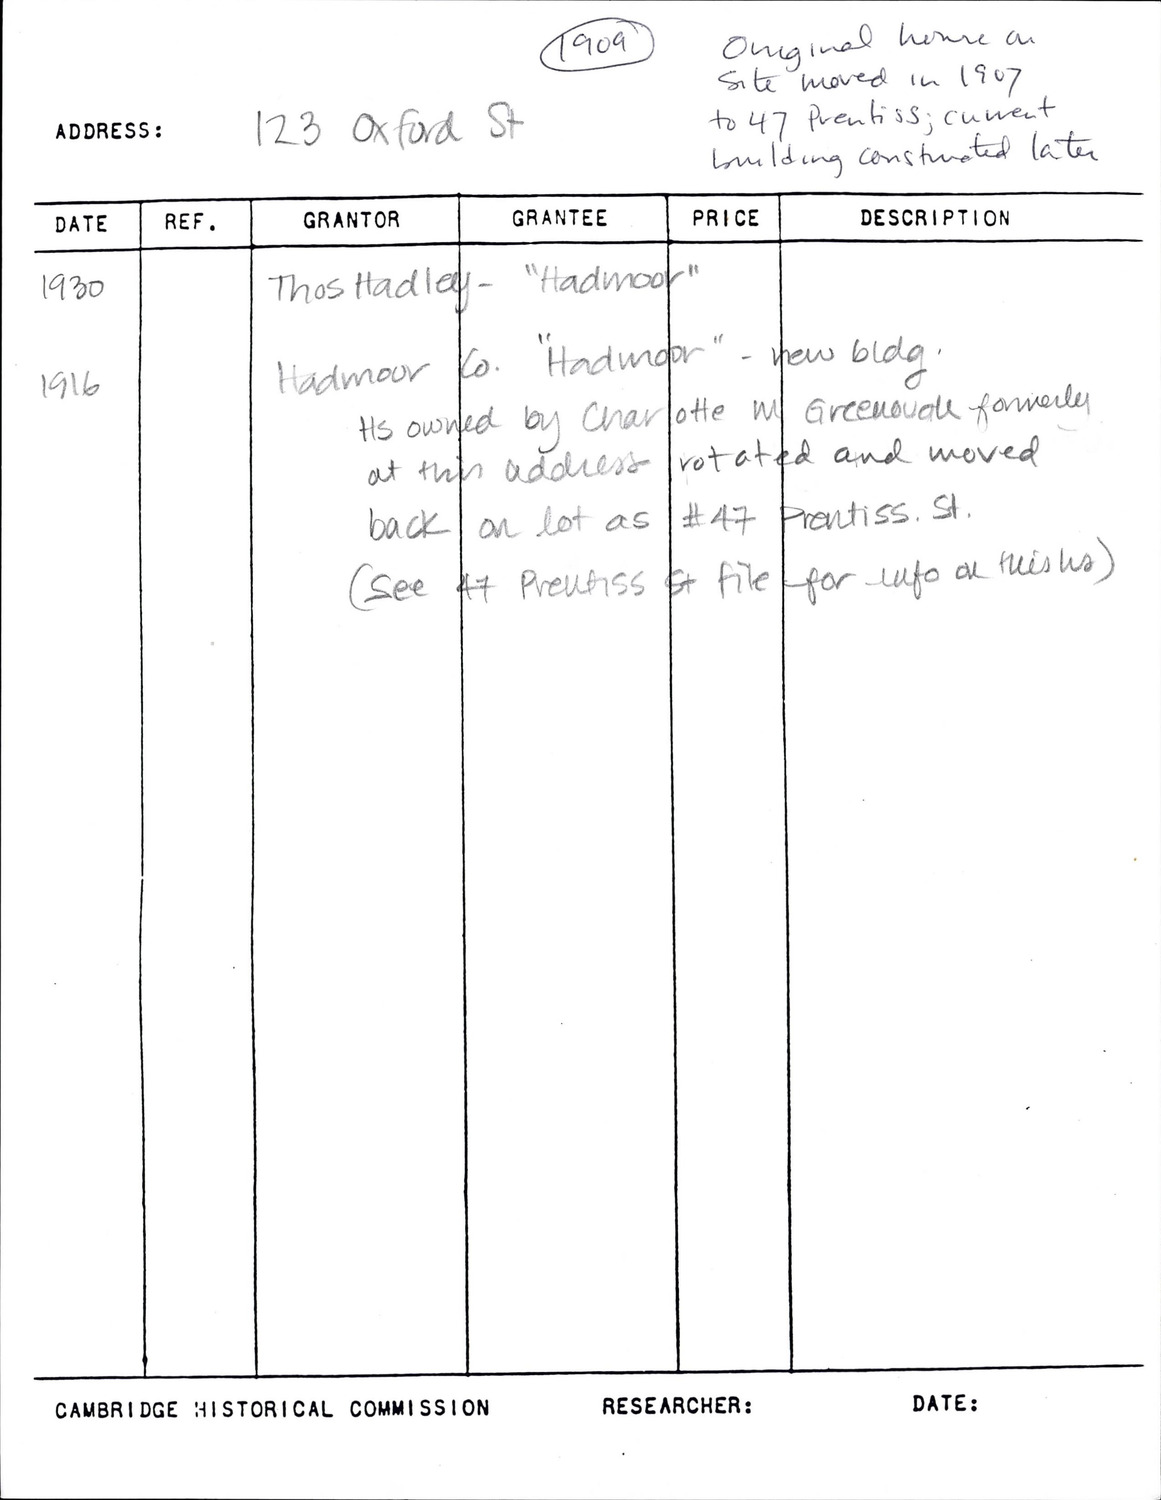 1909
Original house on
site moved in 1907
to 47 Prentiss; current
building constructed later
ADDRESS: 123 Oxford St
DATE REF. GRANTOR GRANTEE PRICE DESCRIPTION
1930 Thos Hadley - "Hadmoor"
1916 Hadmoor Co. "Hadmoor" - new bldg.
Hs owned by Charlotte M Greenough formerly
at this address rotated and moved
back on lot as #47 Prentiss. St.
(See 47 Prentiss St file for info on this hs)
CAMBRIDGE HISTORICAL COMMISSION RESEARCHER: DATE: